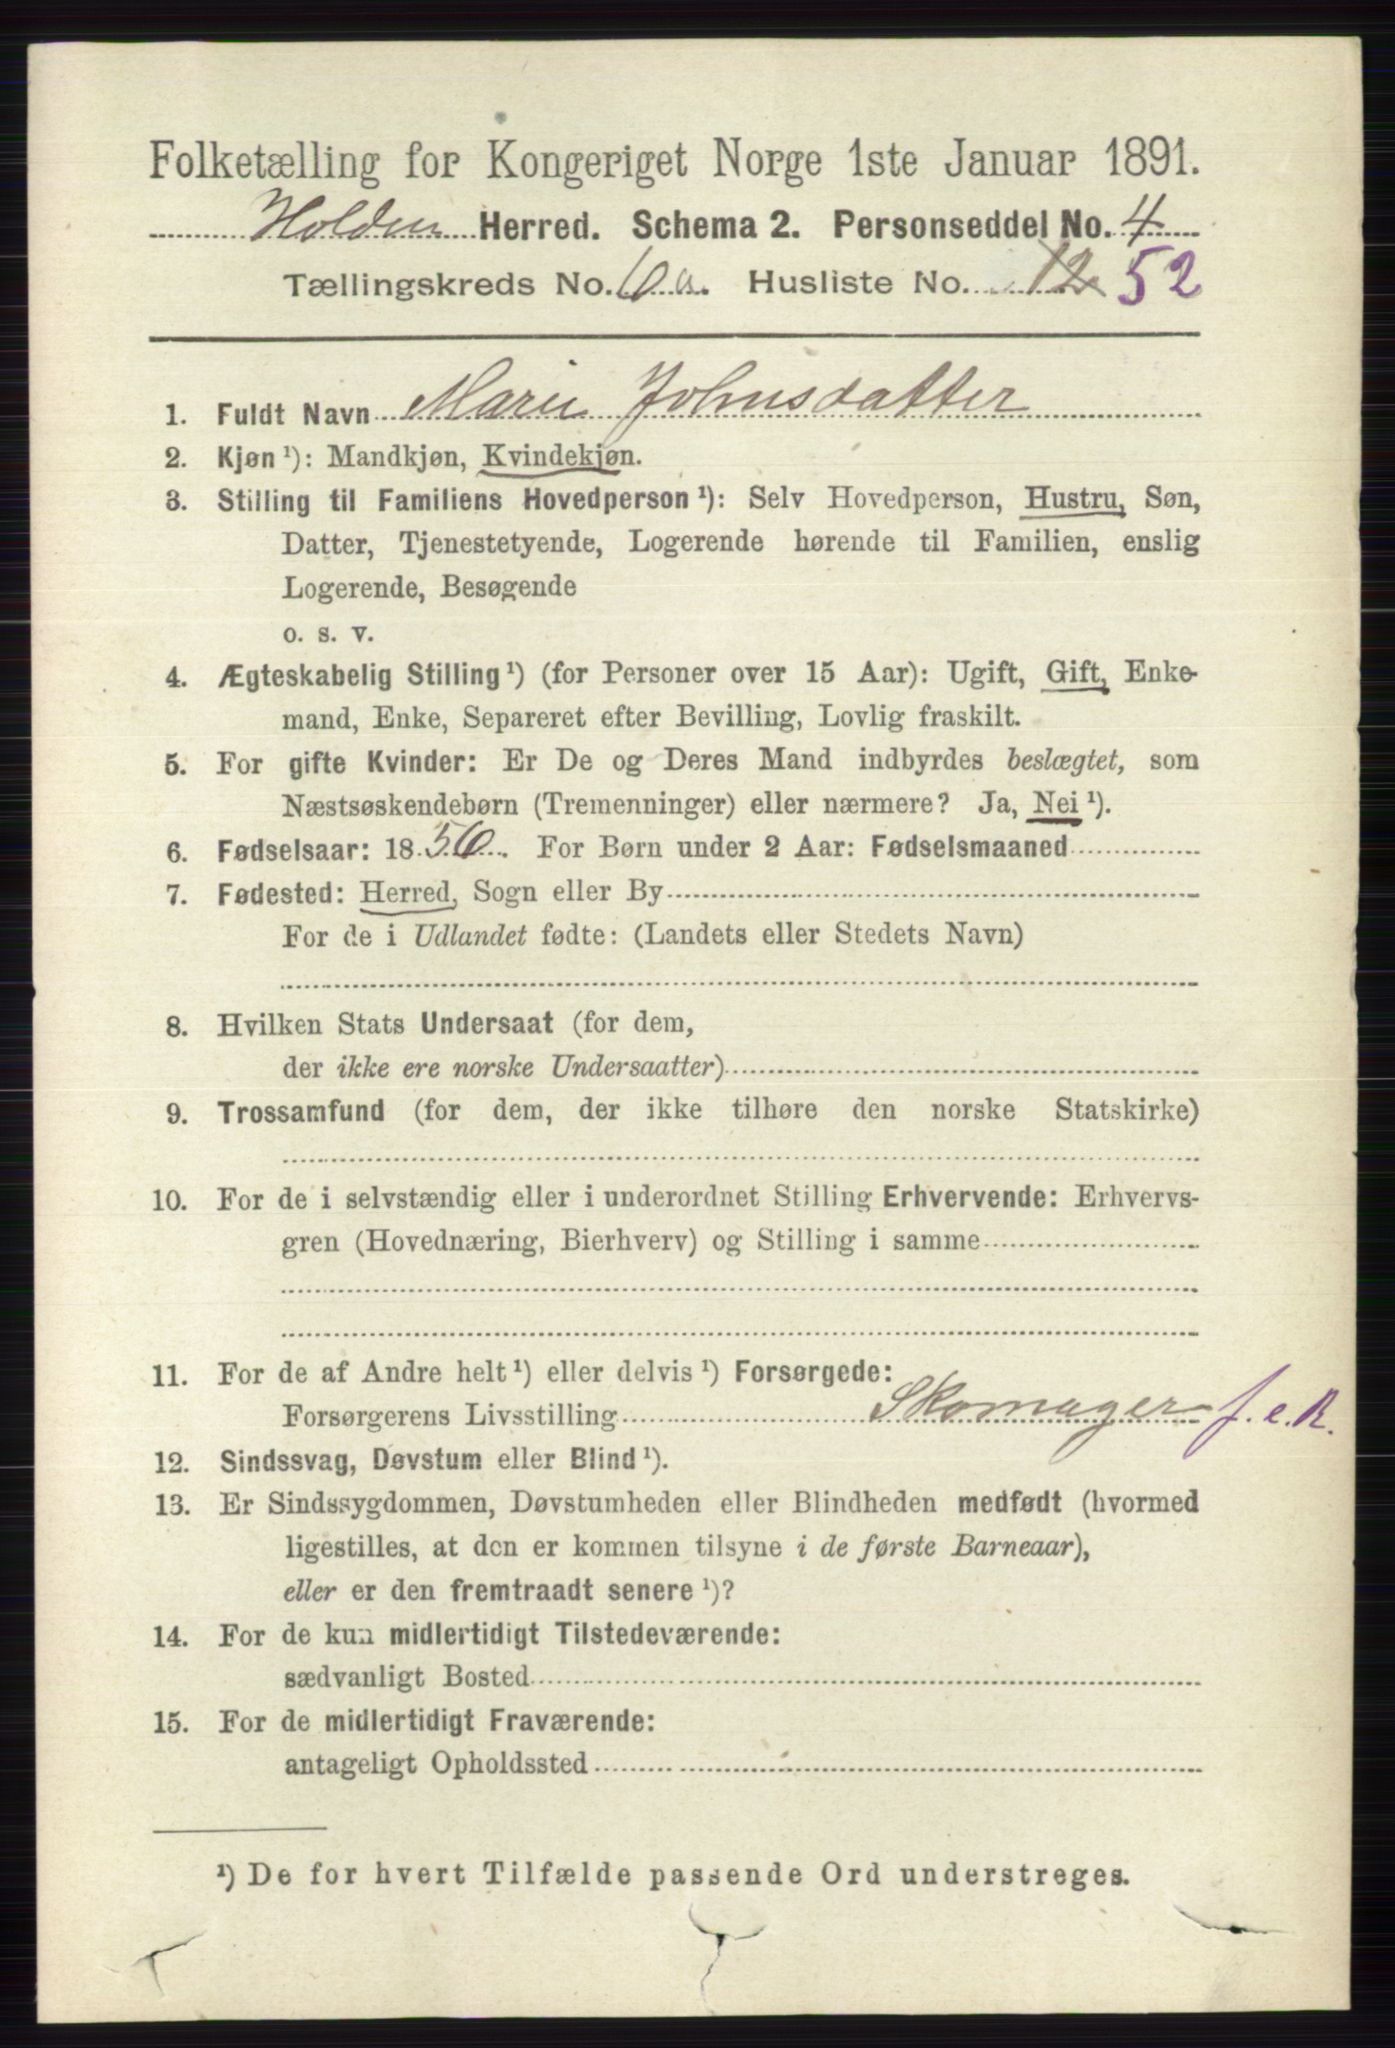 Folketælling for Kongeriget Norge 1ste Januar 1891.
Holden Herred. Schema 2. Personseddel No. 4
Tællingskreds No. 6 a. Husliste No. 12 52
1. Fuldt Navn Marie Johnsdatter
2. Kjøn ¹): Mandkjøn, Kvindekjøn.
3. Stilling til Familiens Hovedperson ¹): Selv Hovedperson, Hustru, Søn,
Datter, Tjenestetyende, Logerende hørende til Familien, enslig
Logerende, Besøgende
o. s. v.
4. Ægteskabelig Stilling ¹) (for Personer over 15 Aar): Ugift, Gift, Enke-
mand, Enke, Separeret efter Bevilling, Lovlig fraskilt.
5. For gifte Kvinder: Er De og Deres Mand indbyrdes beslægtet, som
Næstsøskendebørn (Tremenninger) eller nærmere? Ja, Nei ¹).
6. Fødselsaar: 1856. For Børn under 2 Aar: Fødselsmaaned
7. Fødested: Herred, Sogn eller By
For de i Udlandet fødte: (Landets eller Stedets Navn)
8. Hvilken Stats Undersaat (for dem,
der ikke ere norske Undersaatter)
9. Trossamfund (for dem, der ikke tilhøre den norske Statskirke)
10. For de i selvstændig eller i underordnet Stilling Erhvervende: Erhvervs-
gren (Hovednæring, Bierhverv) og Stilling i samme
11. For de af Andre helt ¹) eller delvis ¹) Forsørgede:
Forsørgerens Livsstilling Skomager f. e. R.
12. Sindssvag, Døvstum eller Blind ¹).
13. Er Sindssygdommen, Døvstumheden eller Blindheden medfødt (hvormed
ligestilles, at den er kommen tilsyne i de første Barneaar),
eller er den fremtraadt senere ¹)?
14. For de kun midlertidigt Tilstedeværende:
sædvanligt Bosted
15. For de midlertidigt Fraværende:
antageligt Opholdssted
¹) De for hvert Tilfælde passende Ord understreges.